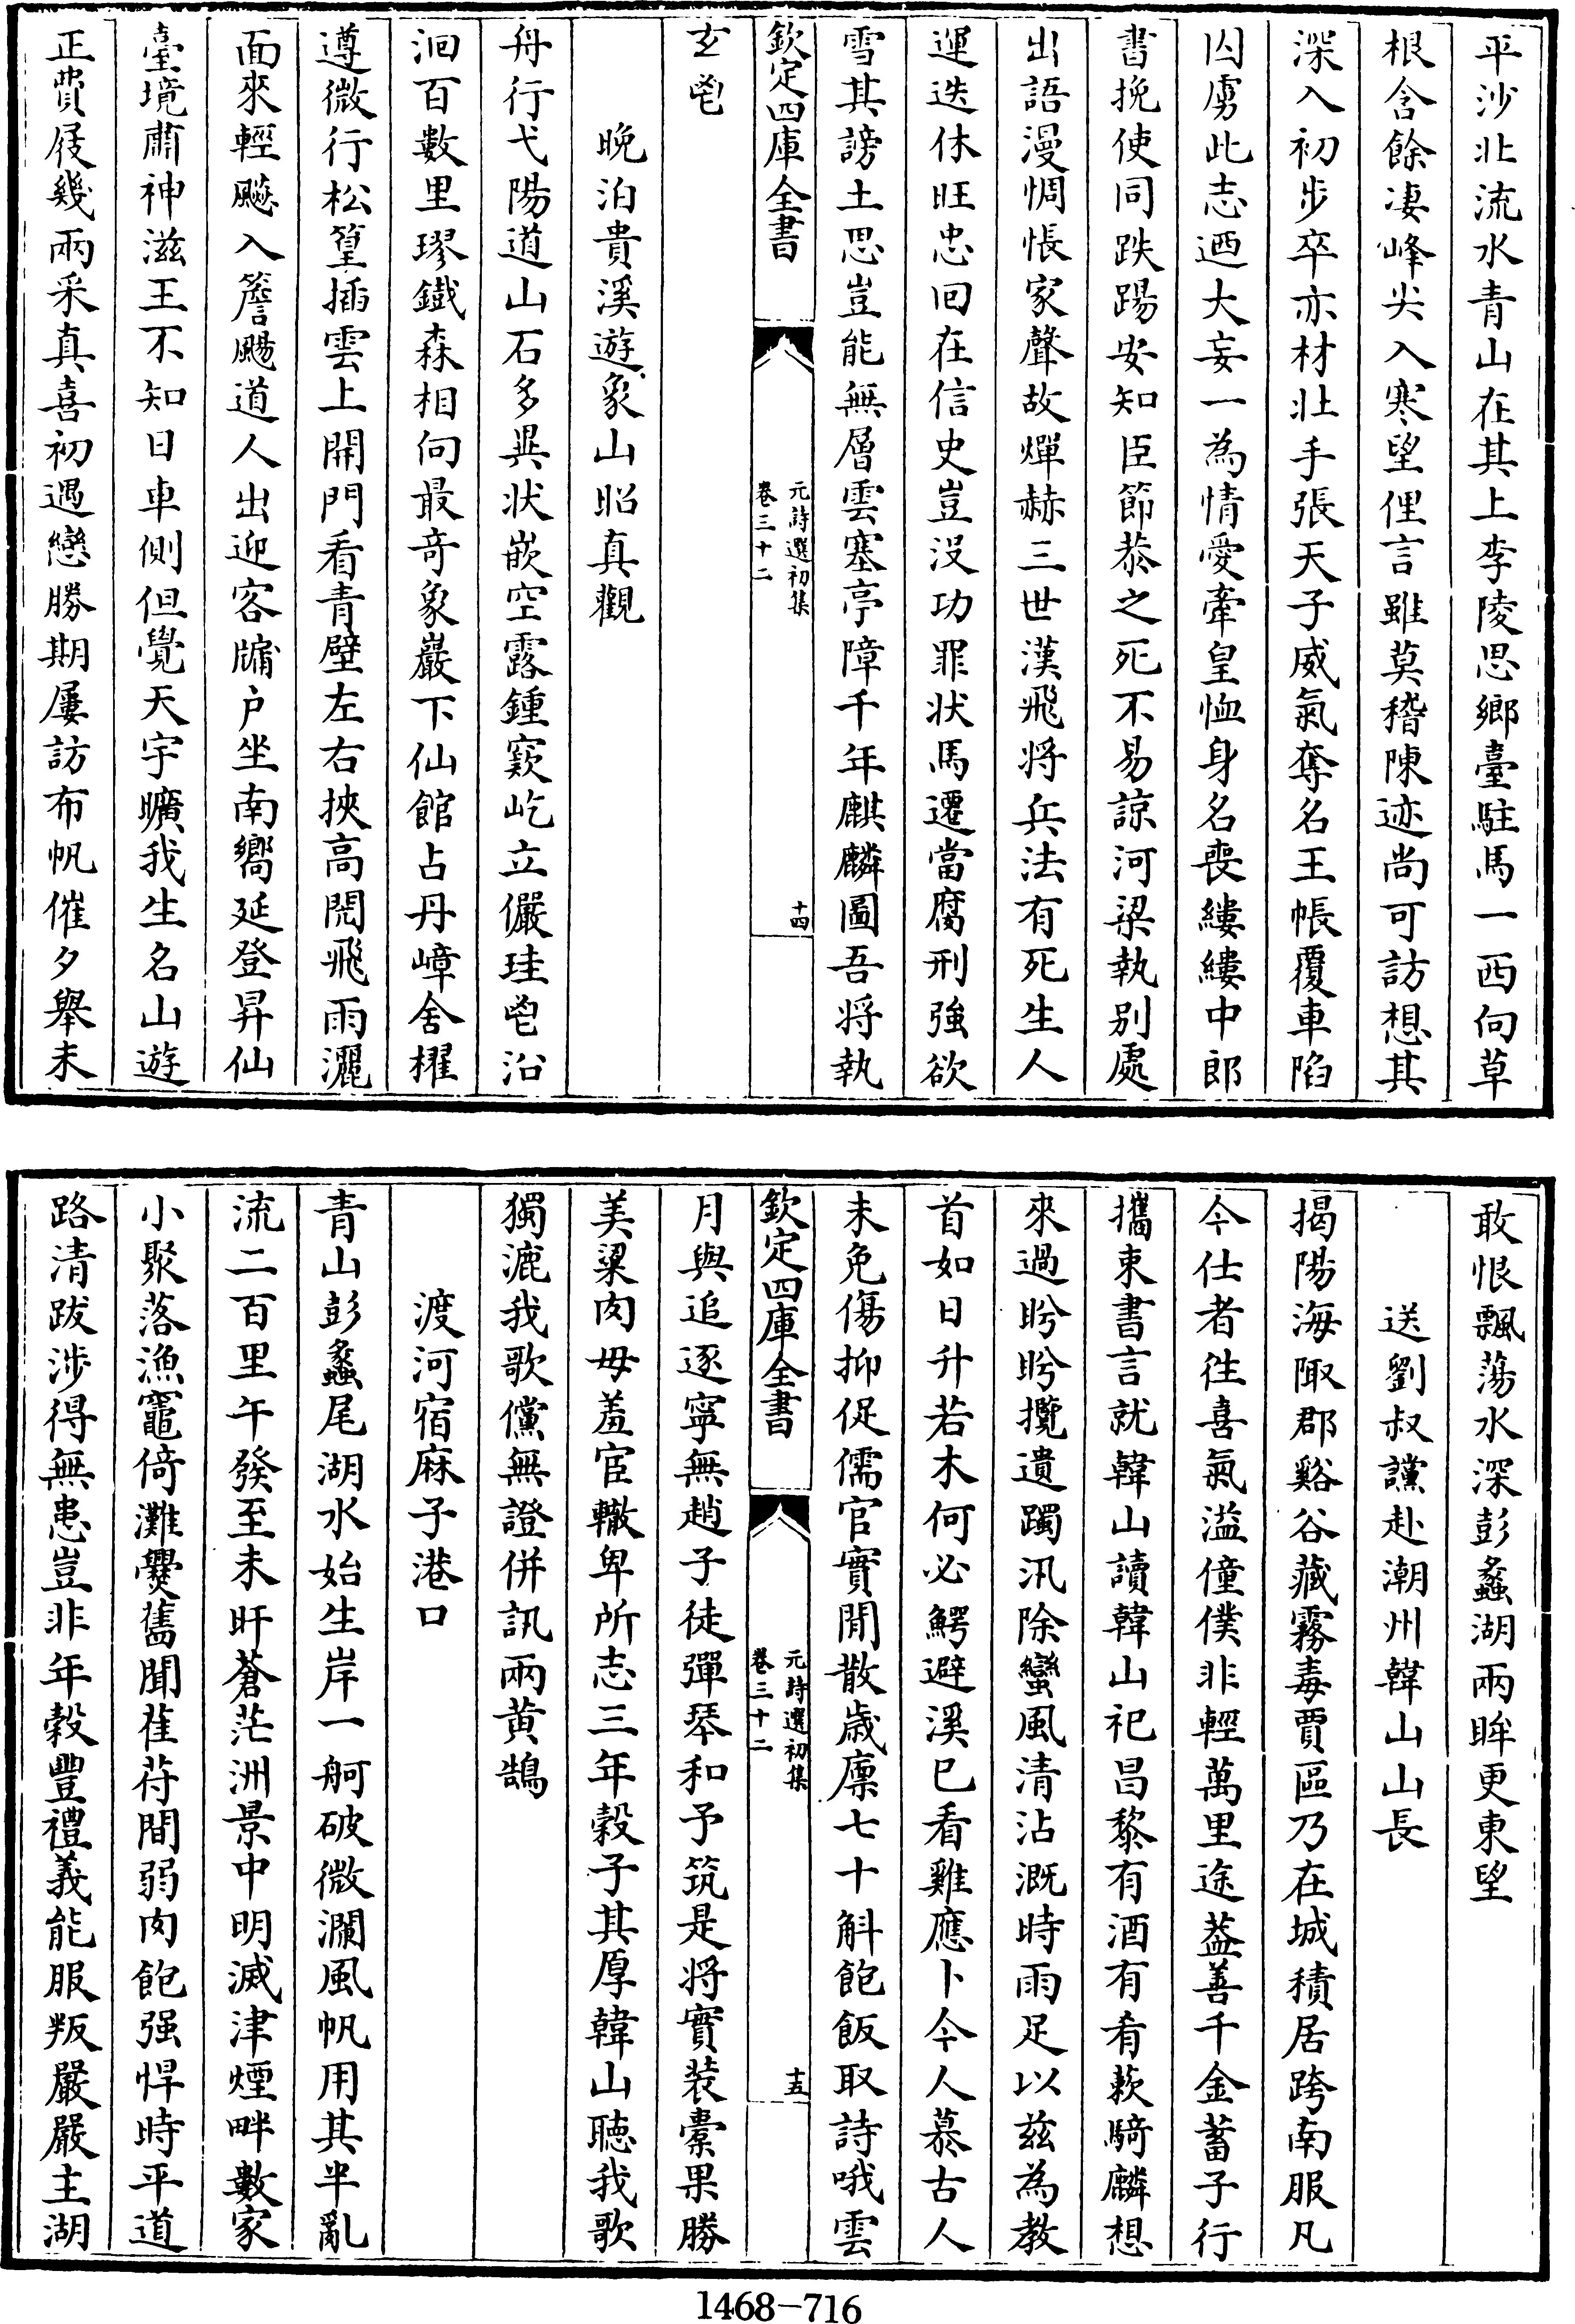 平沙北流水青山在其上李陵思鄉臺駐馬一西向草
根含餘凄峰尖入寒望俚言雖莫稽陳迹尚可訪想其
深入初步卒亦材壯手張天子威氣奪名王帳覆車陷
囚虜此志迺大妄一為情愛牽皇恤身名喪縷縷中郎
書挽使同跌踢安知臣節恭之死不易諒河梁執别處
出語漫惆悵家聲故燀赫三世漢飛将兵法有死生人
運迭休旺忠回在信史豈没功罪状馬遷當腐刑強欲
雪其謗土思豈能無層雲塞亭障千年麒麟圖吾将執
欽定四庫全書
元詩選初集
卷三十二
十四
玄鬯
晚泊貴溪遊象山昭真觀
舟行弋陽道山石多異状嵌空露鍾竅屹立儼珪鬯沿
洄百數里璆鐵森相向最奇象巖下仙館占丹嶂舍櫂
遵微行松篁插雲上開門看青壁左右挾高閌飛雨灑
面來輕飈入簷颺道人出迎客牖户坐南嚮延登昇仙
臺境肅神滋王不知日車側但覺天宇曠我生名山遊
正費屐幾兩采真喜初遇戀勝期屢訪布帆催夕舉未
敢恨飄蕩水深彭蠡湖兩眸更東望
送劉叔讜赴潮州韓山山長
揭陽海陬郡谿谷藏霧毒賈區乃在城積居跨南服凡
今仕者徃喜氣溢僮僕非輕萬里途葢善千金蓄子行
攜束書言就韓山讀韓山祀昌黎有酒有肴蔌騎麟想
來過盻盻攬遺躅汛除蠻風清沾溉時雨足以兹為教
首如日升若木何必鰐避溪已看雞應卜今人慕古人
未免傷抑促儒官實閒散歲廪七十斛飽飯取詩哦雲
欽定四庫全書
元詩選初集
卷三十二
十五
月與追逐寧無趙子徒彈琴和予筑是将實装橐果勝
美粱肉毋羞宦轍卑所志三年穀子其厚韓山聴我歌
獨漉我歌儻無證併訊兩黄鵠
渡河宿麻子港口
青山彭蠡尾湖水始生岸一舸破微瀾風帆用其半亂
流二百里午發至未旰蒼茫洲景中明滅津煙畔數家
小聚落漁竈倚灘爨舊聞萑苻間弱肉飽强悍時平道
路清跋涉得無患豈非年穀豐禮義能服叛嚴嚴主湖
1468-716